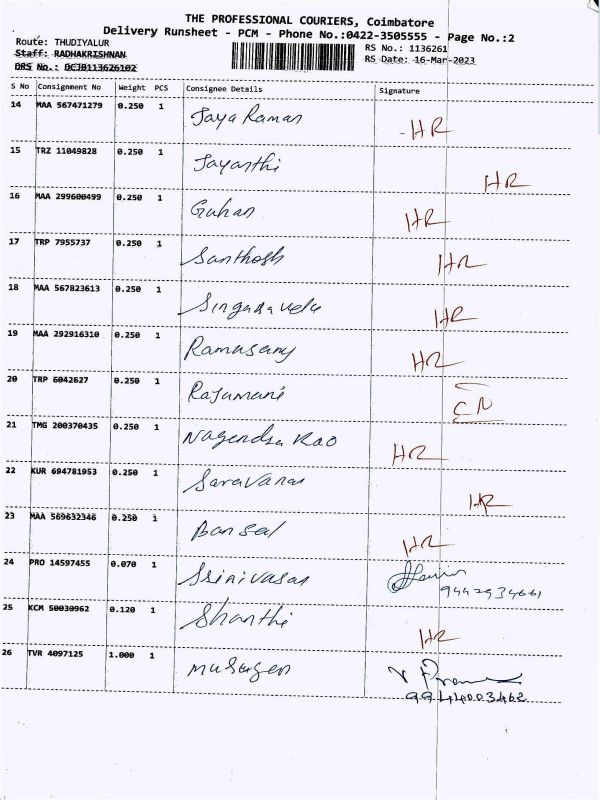 THE PROFESSIONAL COURIERS, Coimbatore
Delivery Runsheet - PCM - Phone No.:0422-3505555 - Page No.:2
Route: THUDIYALUR RS No.: 1136261
Staff: RADHAKRISHNAN RS Date: 16-Mar-2023
DRS No.: DCJB113626102
S No Consignment No Weight PCS Consignee Details Signature
14 MAA 567471279 0.250 1 Jaya Raman HR
15 TRZ 11049828 0.250 1 Jayanthi HR
16 MAA 299600499 0.250 1 Guhan HR
17 TRP 7955737 0.250 1 Santhosh HR
18 MAA 567823613 0.250 1 Singaravelu HR
19 MAA 292916310 0.250 1 Ramasamy HR
20 TRP 6042627 0.250 1 Rajamani CN
21 TMG 200370435 0.250 1 Nagendra Rao HR
22 KUR 694781953 0.250 1 Saravanan HR
23 MAA 569632346 0.250 1 Bansal HR
24 PRO 14597455 0.070 1 Srinivasan 9442934661
25 KCM 50030962 0.120 1 Shanthi HR
26 TVR 4097125 1.000 1 Murugen 9944003462